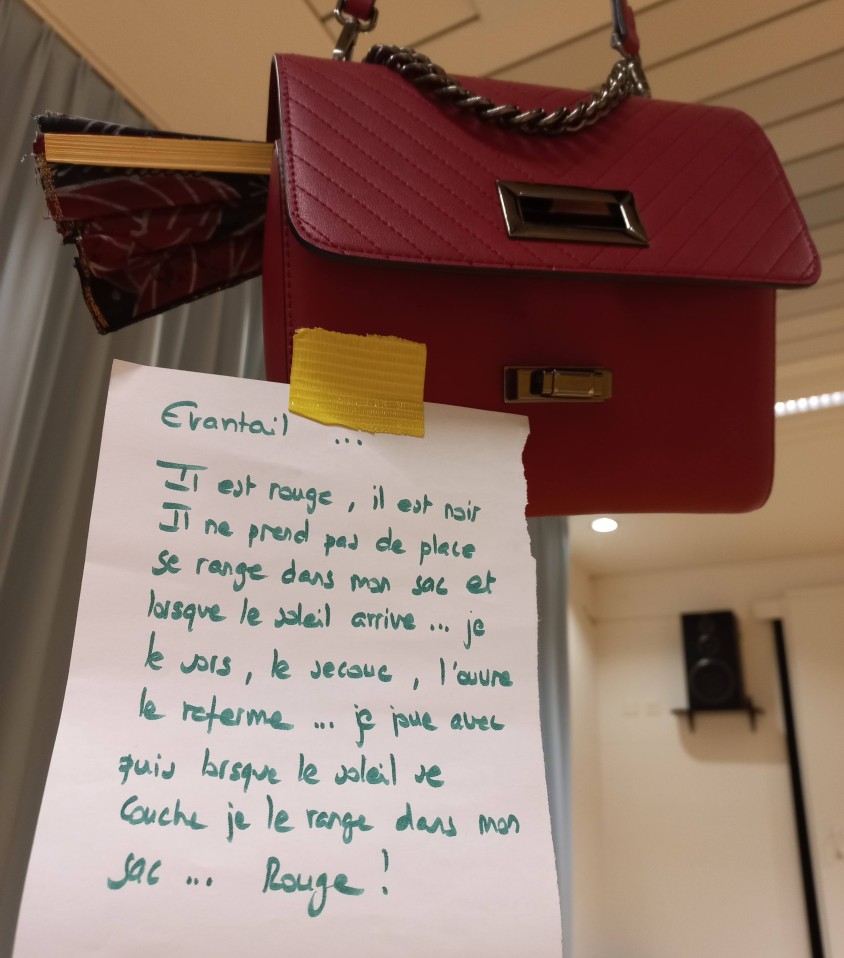 Evantail ...
Il est rouge, il est noir
Il ne prend pas de place
se range dans mon sac et
lorsque le soleil arrive ... je
le sors, le secoue, l'ouvre
le referme ... je joue avec
puis lorsque le soleil se
couche je le range dans mon
sac ... Rouge !